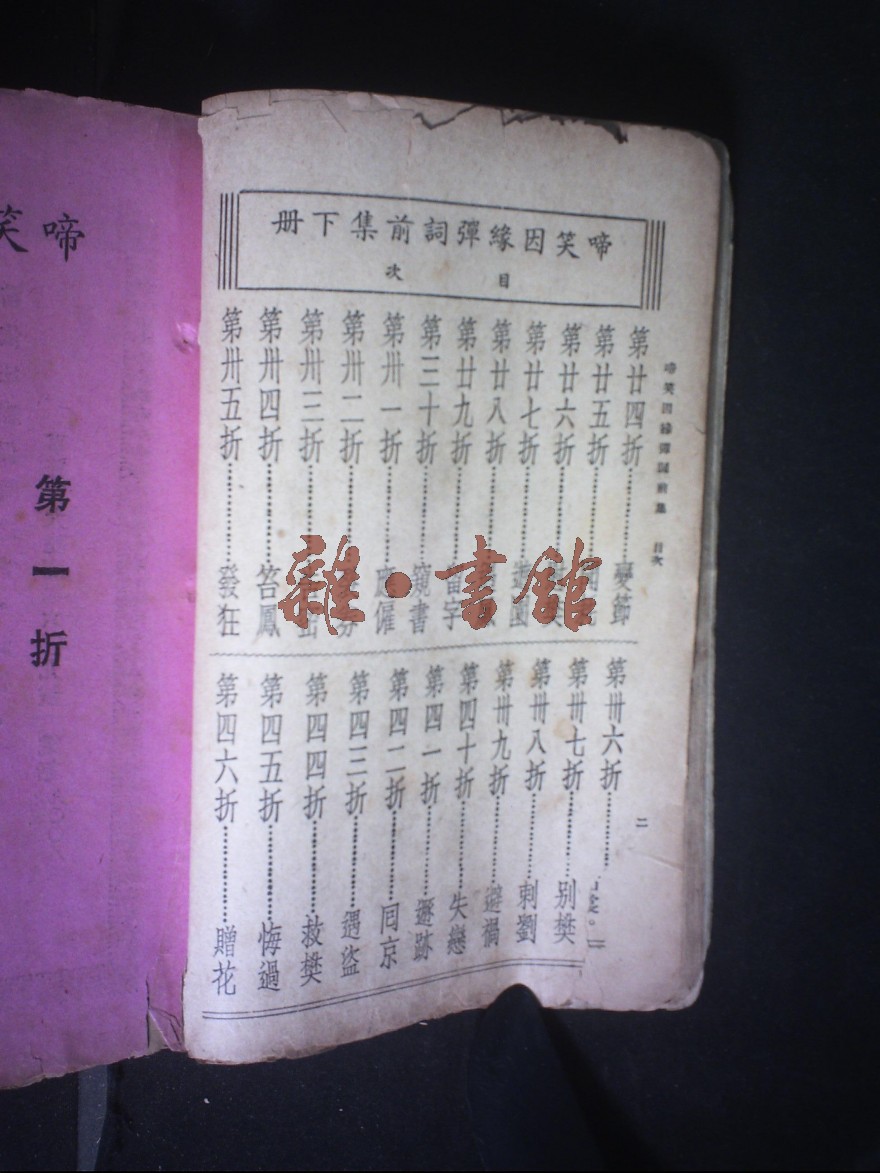 啼笑因緣彈詞前集下册
目次
啼笑因緣彈詞前集 目次
第廿四折 變節
第廿五折
第廿六折
第廿七折 遊園
第廿八折
第廿九折 留字
第三十折 窺書
第卅一折 應僱
第卅二折
第卅三折
第卅四折 笞鳳
第卅五折 發狂
第卅六折
第卅七折 別樊
第卅八折 刺劉
第卅九折 避禍
第四十折 失戀
第四一折 遯跡
第四二折 囘京
第四三折 遇盜
第四四折 救樊
第四五折 悔過
第四六折 贈花
二
啼笑
第一折
雜·書館